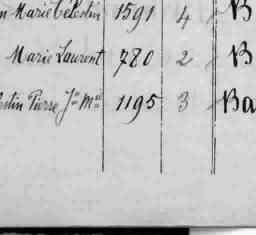 n Marie Célestin 1591 4 B
Marie Laurent 780 2 B
estin Pierre Jn Mie 1195 3 Ba